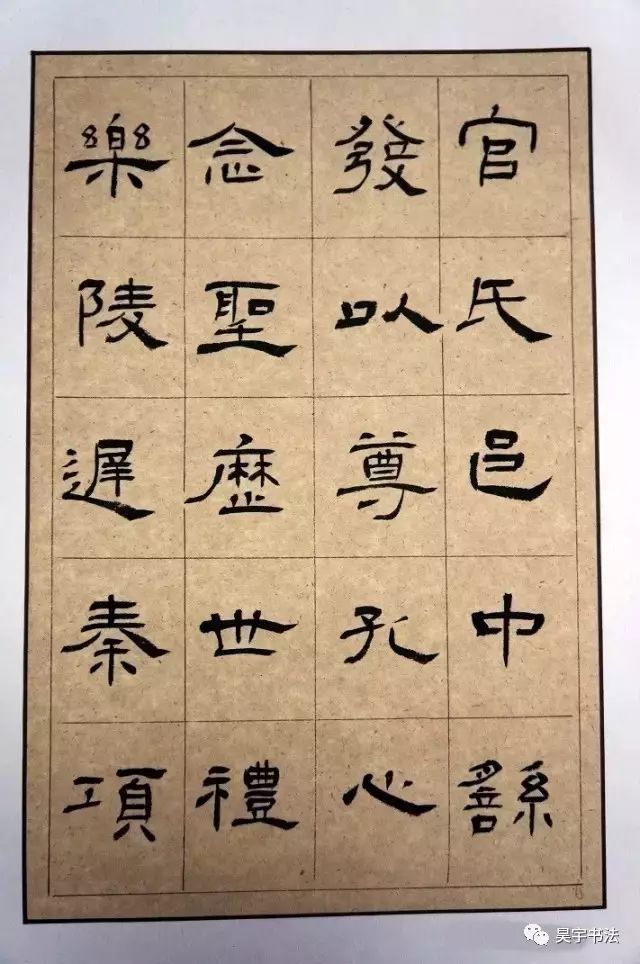 官氏邑中繇
發以尊孔心
念聖歷世禮
樂陵遟秦項
昊宇书法